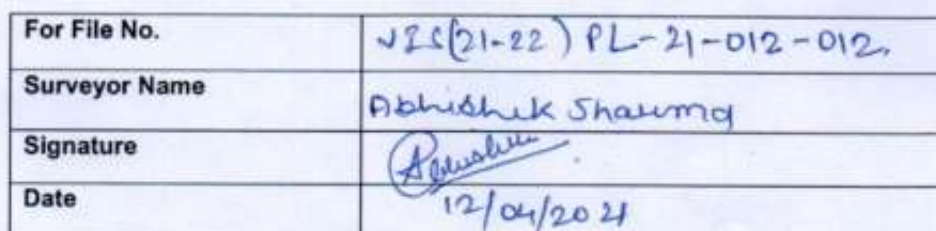 For File No. VIS(21-22) PL-21-012-012.
Surveyor Name Abhishek Sharma
Signature Abhishek
Date 12/04/2021